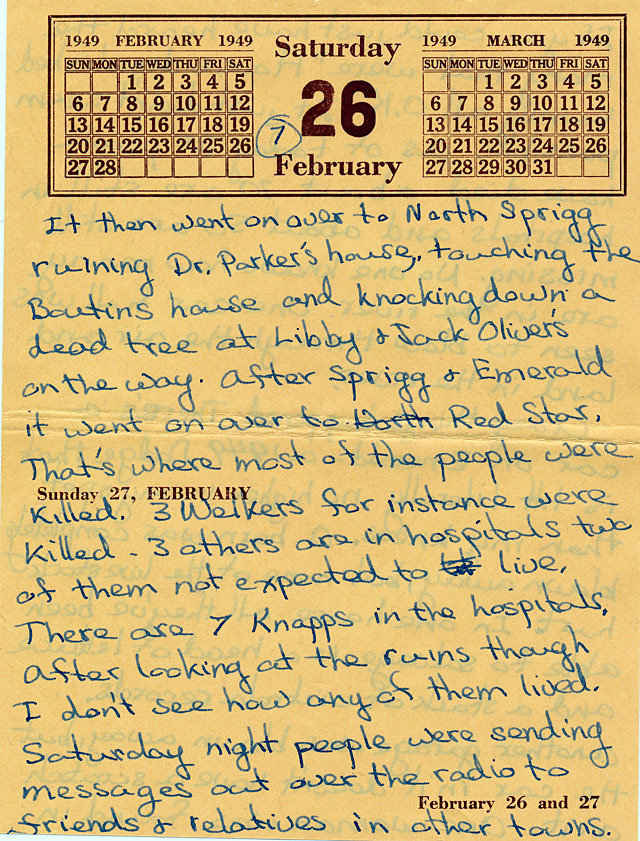 1949 FEBRUARY 1949
SUN MON TUE WED THU FRI SAT
1 2 3 4 5
6 7 8 9 10 11 12
13 14 15 16 17 18 19
20 21 22 23 24 25 26
27 28
Saturday
26
7
February
1949 MARCH 1949
SUN MON TUE WED THU FRI SAT
1 2 3 4 5
6 7 8 9 10 11 12
13 14 15 16 17 18 19
20 21 22 23 24 25 26
27 28 29 30 31
It then went on over to North Sprigg
ruining Dr. Parker's house, touching the
Boutins house and knocking down a
dead tree at Libby & Jack Oliver's
on the way. After Sprigg & Emerald
it went on over to North Red Star.
That's where most of the people were
Sunday 27, FEBRUARY
killed. 3 Welkers for instance were
killed - 3 others are in hospitals two
of them not expected to live.
There are 7 Knapps in the hospitals.
After looking at the ruins though
I don't see how any of them lived.
Saturday night people were sending
messages out over the radio to
February 26 and 27
friends & relatives in other towns.